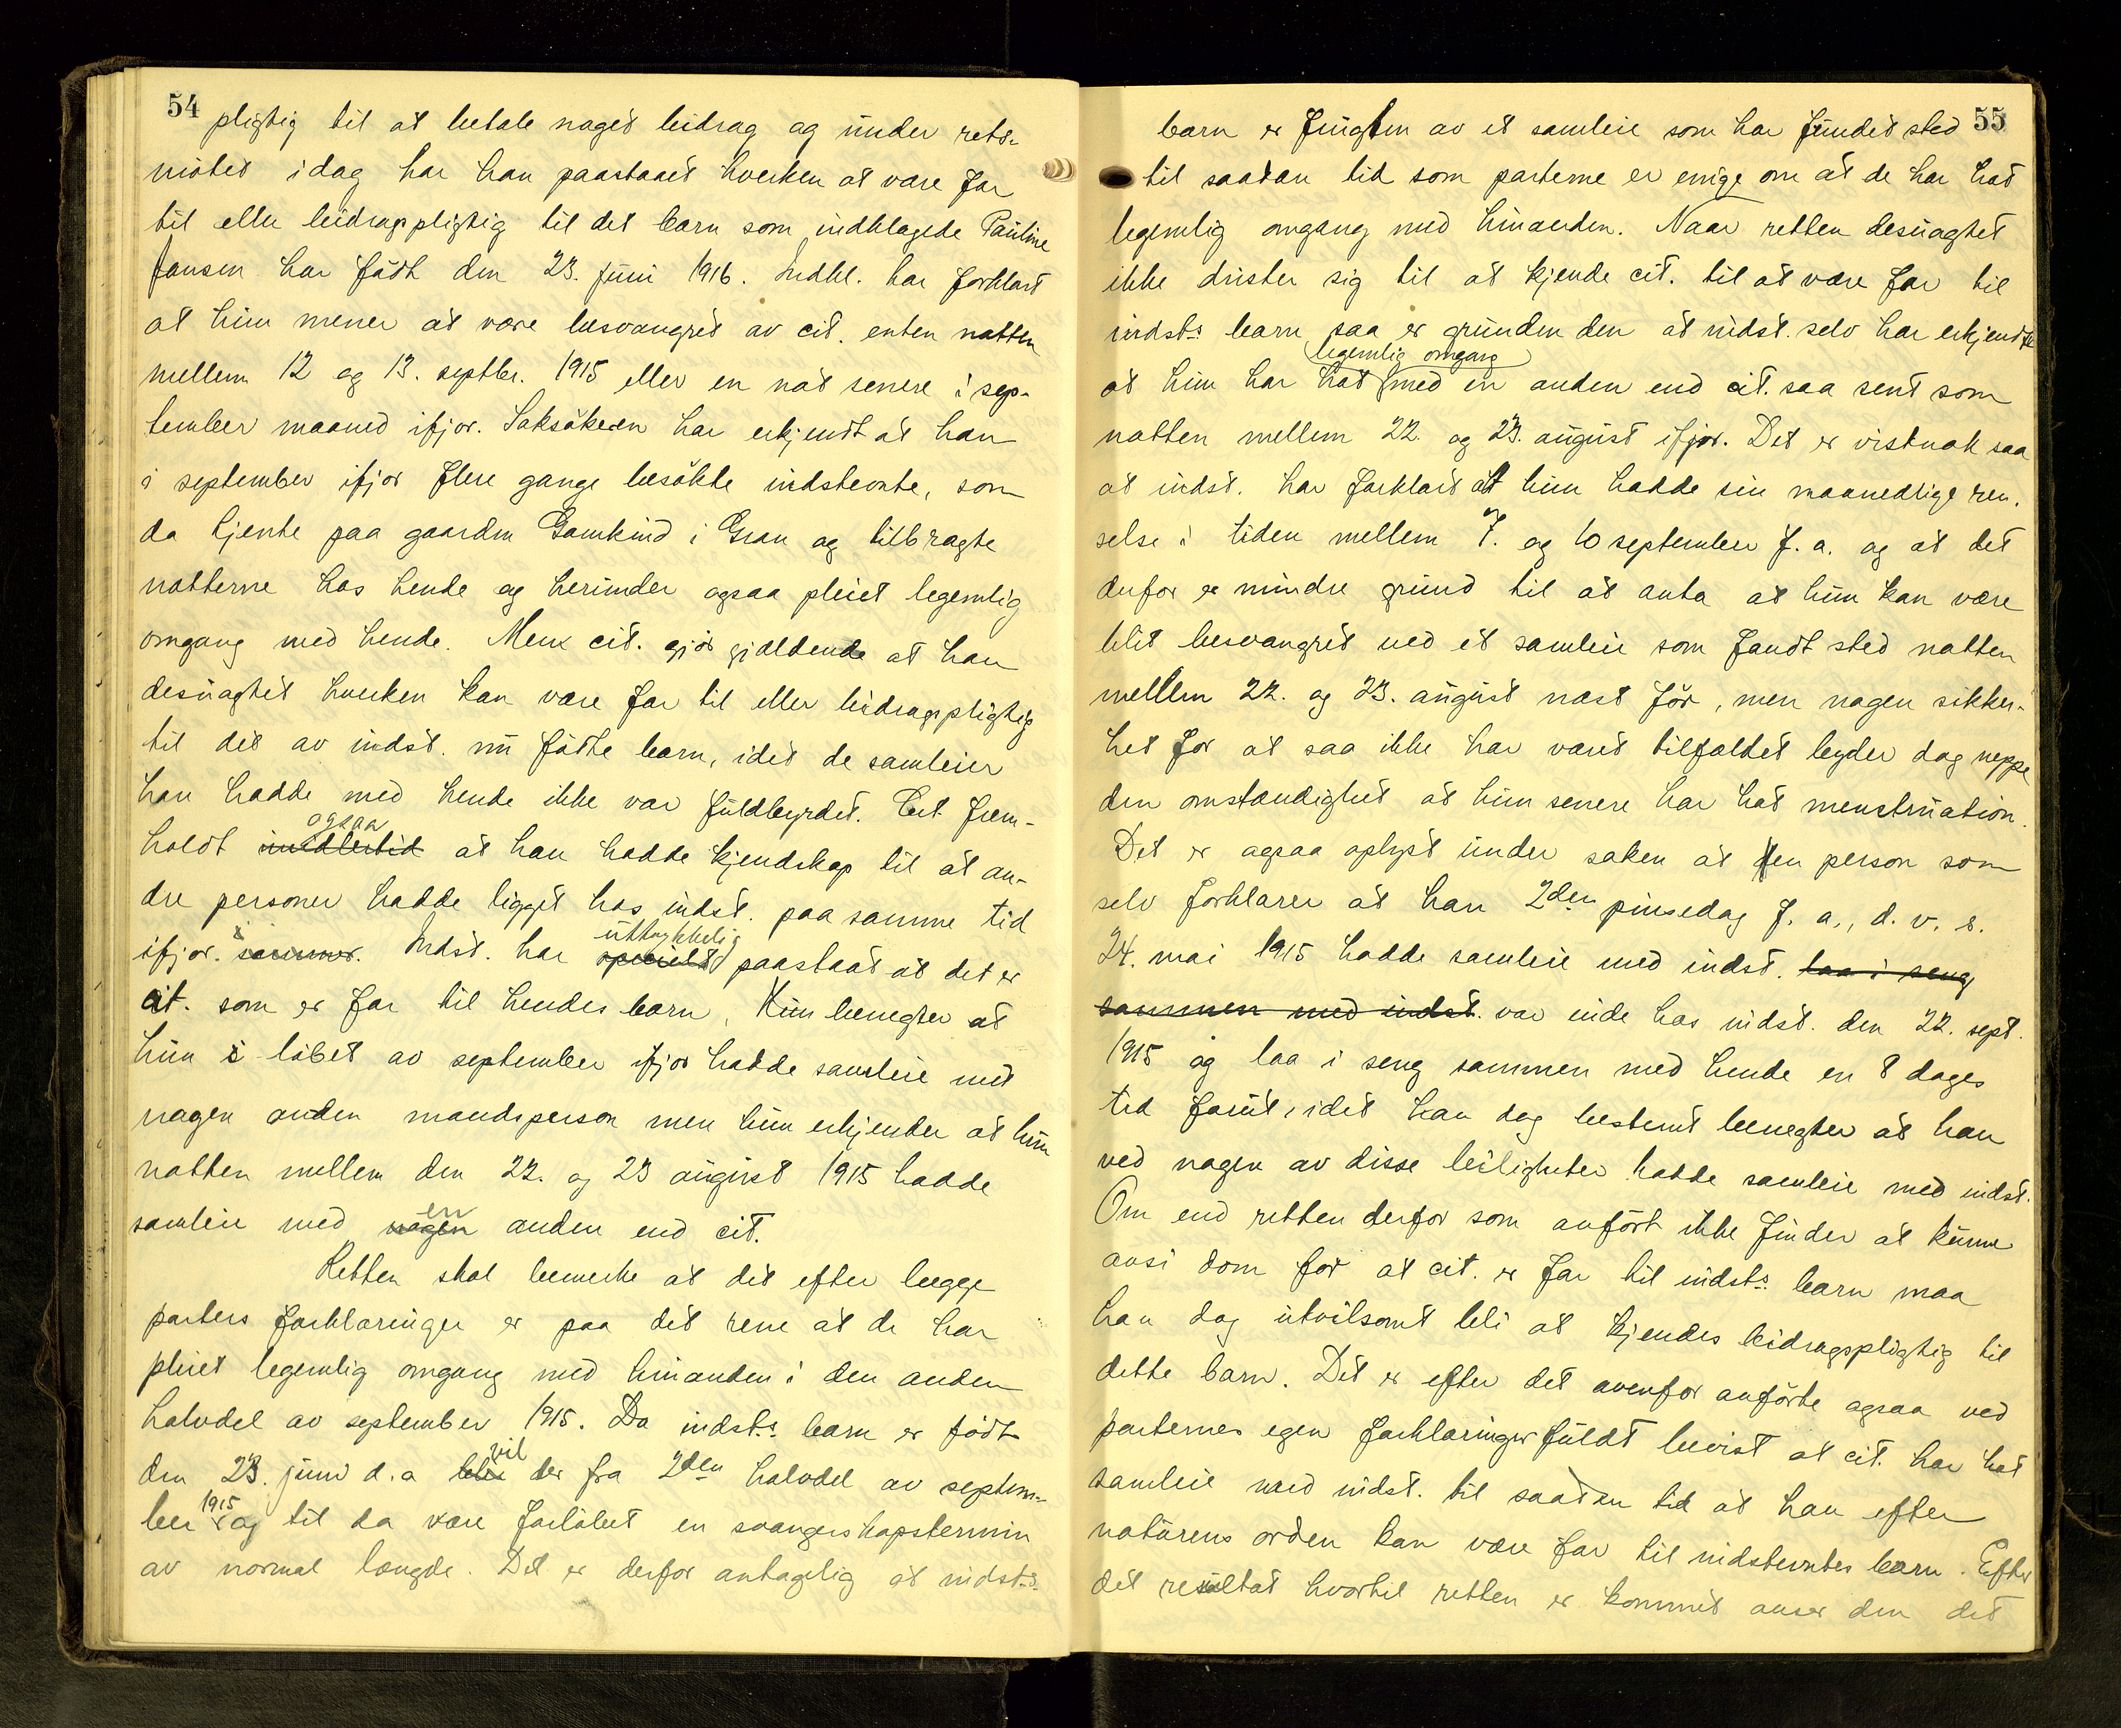 54
pligtig til at betale noget bidrag og under rets-
møtet idag har han paastaaet hverken at være far
til eller bidragspligtig til det barn som indklagede Pauline
Jansen har født den 23. juni 1916. Indkl. har forklart
at hun mener at være besvangret av cit. enten natten
mellem 12 og 13. septbr. 1915 eller en nat senere i sep-
tember maaned ifjor. Saksøkeren har erkjendt at han
i september ifjor flere gange besøkte indstevnte, som
da tjente paa gaarden Gamkind i Gran og tilbragte
nætterne hos hende og herunder ogsaa pleiet legemlig
omgang med hende. Men cit. gjør gjældende at han
desuagtet hverken kan være far til eller bidragspligtig
til det av indst. nu fødte barn, idet de samleier
han hadde med hende ikke var fuldbyrdet. Cit. frem-
holdt imidlertid ogsaa at han hadde kjendskap til at an-
dre personer hadde ligget hos indst. paa samme tid
ifjor. sommer. Indst. har specielt uttrykkelig paastaat at det er
cit. som er far til hendes barn. Hun benegter at
hun i løbet av september ifjor hadde samleie med
nogen anden mandsperson men hun erkjender at hun
natten mellem den 22. og 23 august 1915 hadde
samleie med nogen en anden end cit.
Retten skal bemerke at det efter begge
parters forklaringer er paa det rene at de har
pleiet legemlig omgang med hinanden i den anden
halvdel av september 1915. Da indst.s barn er født
den 23. juni d.a. vil der fra 2den halvdel av septem-
ber 1915 og til da være forløbet en svangerskapstermin
av normal længde. Det er derfor antagelig at indst.s
55
barn er frugten av et samleie som har fundet sted
til saadan tid som parterne er enige om at de har hat
legemlig omgang med hinanden. Naar retten desuagtet
ikke drister sig til at kjende cit. til at være far til
indst.s barn saa er grunden den at indst. selv har erkjendt
at hun har hat legemlig omgang med en anden end cit. saa sent som
natten mellem 22. og 23. august ifjor. Det er vistnok saa
at indst. har forklart at hun hadde sin maanedlige ren-
selse i tiden mellem 7. og 10 september f. a. og at det
derfor er mindre grund til at anta at hun kan være
blit besvangret ved et samleie som fandt sted natten
mellem 22. og 23. august næst før, men nogen sikker-
het for at saa ikke har været tilfældet byder dog neppe
den omstændighet at hun senere har hat menstruation.
Det er ogsaa oplyst under saken at en person som
selv forklarer at han 2den pinsedag f. a., d. v. s.
24. mai 1915 hadde samleie med indst. laa i seng
sammen med indst. var inde hos indst. den 22. sept.
1915 og laa i seng sammen med hende en 8 dages
tid forut, idet han dog bestemt benegter at han
ved nogen av disse leiligheter hadde samleie med indst.
Om end retten derfor som anført ikke finder at kunne
avsi dom for at cit. er far til indst.s barn maa
han dog utvilsomt bli at kjendes bidragspligtig til
dette barn. Det er efter det ovenfor anførte ogsaa ved
parternes egen forklaringer fuldt bevist at cit. har hat
samleie med indst. til saadan tid at han efter
naturens orden kan være far til indstevntes barn. Efter
det resultat hvortil retten er kommet anser den det